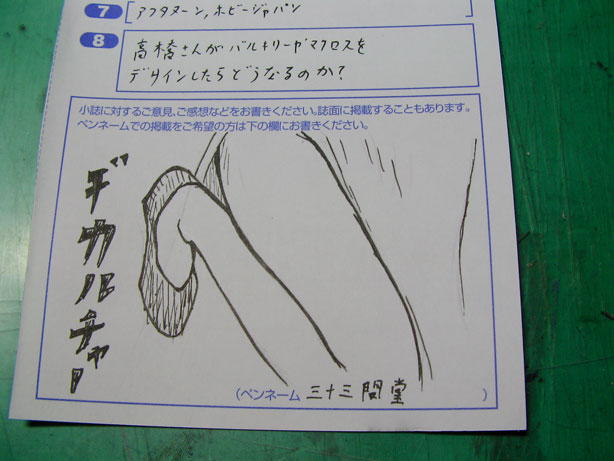 7 アフタヌーン, ホビージャパン
8 高橋さんがバルキリーやマクロスを
デザインしたらどうなるのか?
小誌に対するご意見、ご感想などをお書きください。誌面に掲載することもあります。
ペンネームでの掲載をご希望の方は下の欄にお書きください。
デカルチャー
(ペンネーム 三十三間堂 )